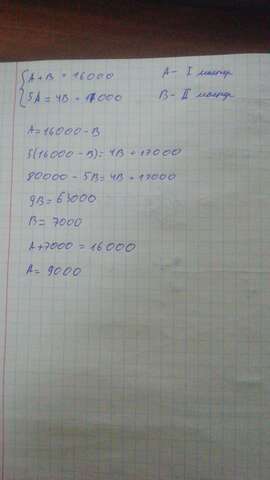 A+B = 16000 A - I мастер
5A = 4B + 17000 B - II мастер
A = 16000 - B
5(16000 - B) = 4B + 17000
80000 - 5B = 4B + 17000
9B = 63000
B = 7000
A+7000 = 16000
A = 9000